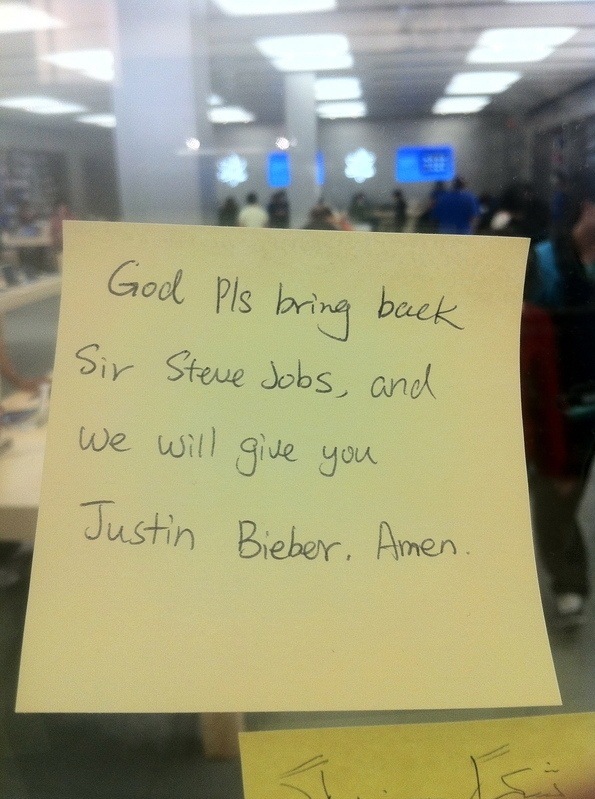 God Pls bring back
Sir Steve Jobs, and
we will give you
Justin Bieber. Amen.